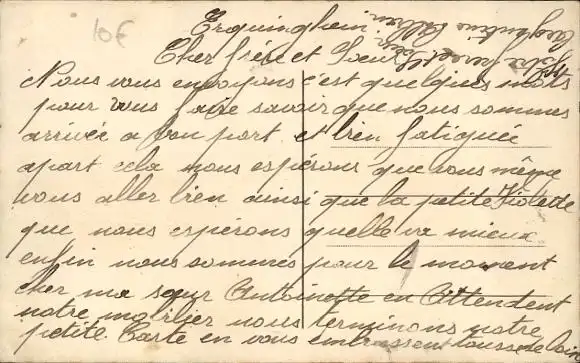 10€
Erquinghem
Cher frère et Soeur
Nous vous envoyons c'est quelques mots
pour vous faire savoir que nous sommes
arrivée a bon port et bien fatiguée
apart cela nous espérons que vous même
vous aller bien ainsi que la petite Violette
que nous espérons quelle va mieux
enfin nous sommes pour le moment
cher ma sœur Antoinette en Attendent
notre mobilier nous terminons notre
petite Carte en vous embrassent tousse de loin